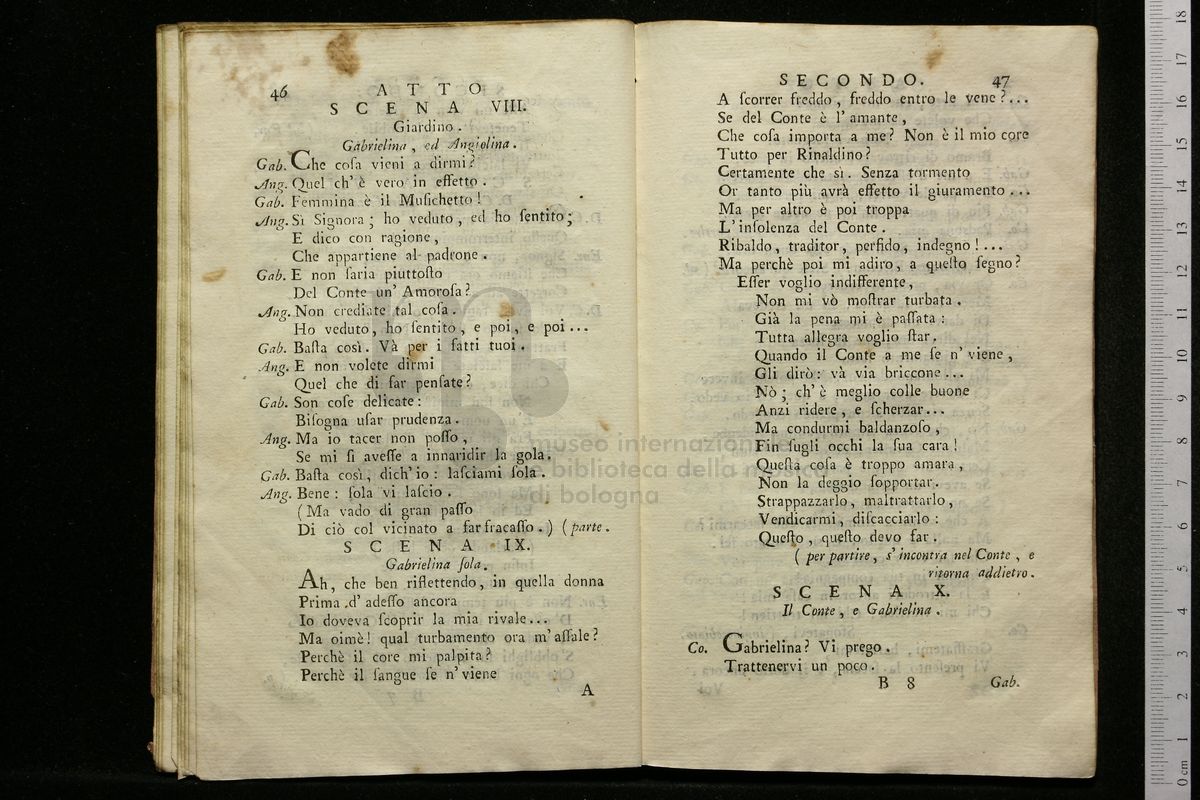 46
ATTO
SCENA VIII.
Giardino.
Gabrielina, ed Angiolina.
Gab. Che coſa vieni a dirmi?
Ang. Quel ch' è vero in effetto.
Gab. Femmina è il Muſichetto!
Ang. Sì Signora; ho veduto, ed ho ſentito;
E dico con ragione,
Che appartiene al padrone.
Gab. E non ſaria piuttoſto
Del Conte un' Amoroſa?
Ang. Non crediate tal coſa.
Ho veduto, ho ſentito, e poi, e poi...
Gab. Baſta così. Và per i fatti tuoi.
Ang. E non volete dirmi
Quel che di far penſate?
Gab. Son coſe delicate:
Biſogna uſar prudenza.
Ang. Ma io tacer non poſſo,
Se mi ſi aveſſe a innaridir la gola.
Gab. Baſta così, dich' io: laſciami ſola.
Ang. Bene: ſola vi laſcio.
(Ma vado di gran paſſo
Di ciò col vicinato a far fracaſſo.) (parte.
SCENA IX.
Gabrielina ſola.
Ah, che ben riflettendo, in quella donna
Prima d' adeſſo ancora
Io doveva ſcoprir la mia rivale...
Ma oimè! qual turbamento ora m' aſſale?
Perchè il core mi palpita?
Perchè il ſangue ſe n' viene
A
SECONDO. 47
A ſcorrer freddo, freddo entro le vene?...
Se del Conte è l' amante,
Che coſa importa a me? Non è il mio core
Tutto per Rinaldino?
Certamente che sì. Senza tormento
Or tanto più avrà effetto il giuramento...
Ma per altro è poi troppa
L' inſolenza del Conte.
Ribaldo, traditor, perfido, indegno!...
Ma perchè poi mi adiro, a queſto ſegno?
Eſſer voglio indifferente,
Non mi vò moſtrar turbata.
Già la pena mi è paſſata:
Tutta allegra voglio ſtar.
Quando il Conte a me ſe n' viene,
Gli dirò: và via briccone...
Nò; ch' è meglio colle buone
Anzi ridere, e ſcherzar...
Ma condurmi baldanzoſo,
Fin ſugli occhi la ſua cara!
Queſta coſa è troppo amara,
Non la deggio ſopportar.
Strappazzarlo, maltrattarlo,
Vendicarmi, diſcacciarlo:
Queſto, queſto devo far.
(per partire, s' incontra nel Conte, e
ritorna addietro.
SCENA X.
Il Conte, e Gabrielina.
Co. Gabrielina? Vi prego.
Trattenervi un poco.
B 8
Gab.
museo internazionale
e biblioteca della musica
di bologna
0 cm 1 2 3 4 5 6 7 8 9 10 11 12 13 14 15 16 17 18